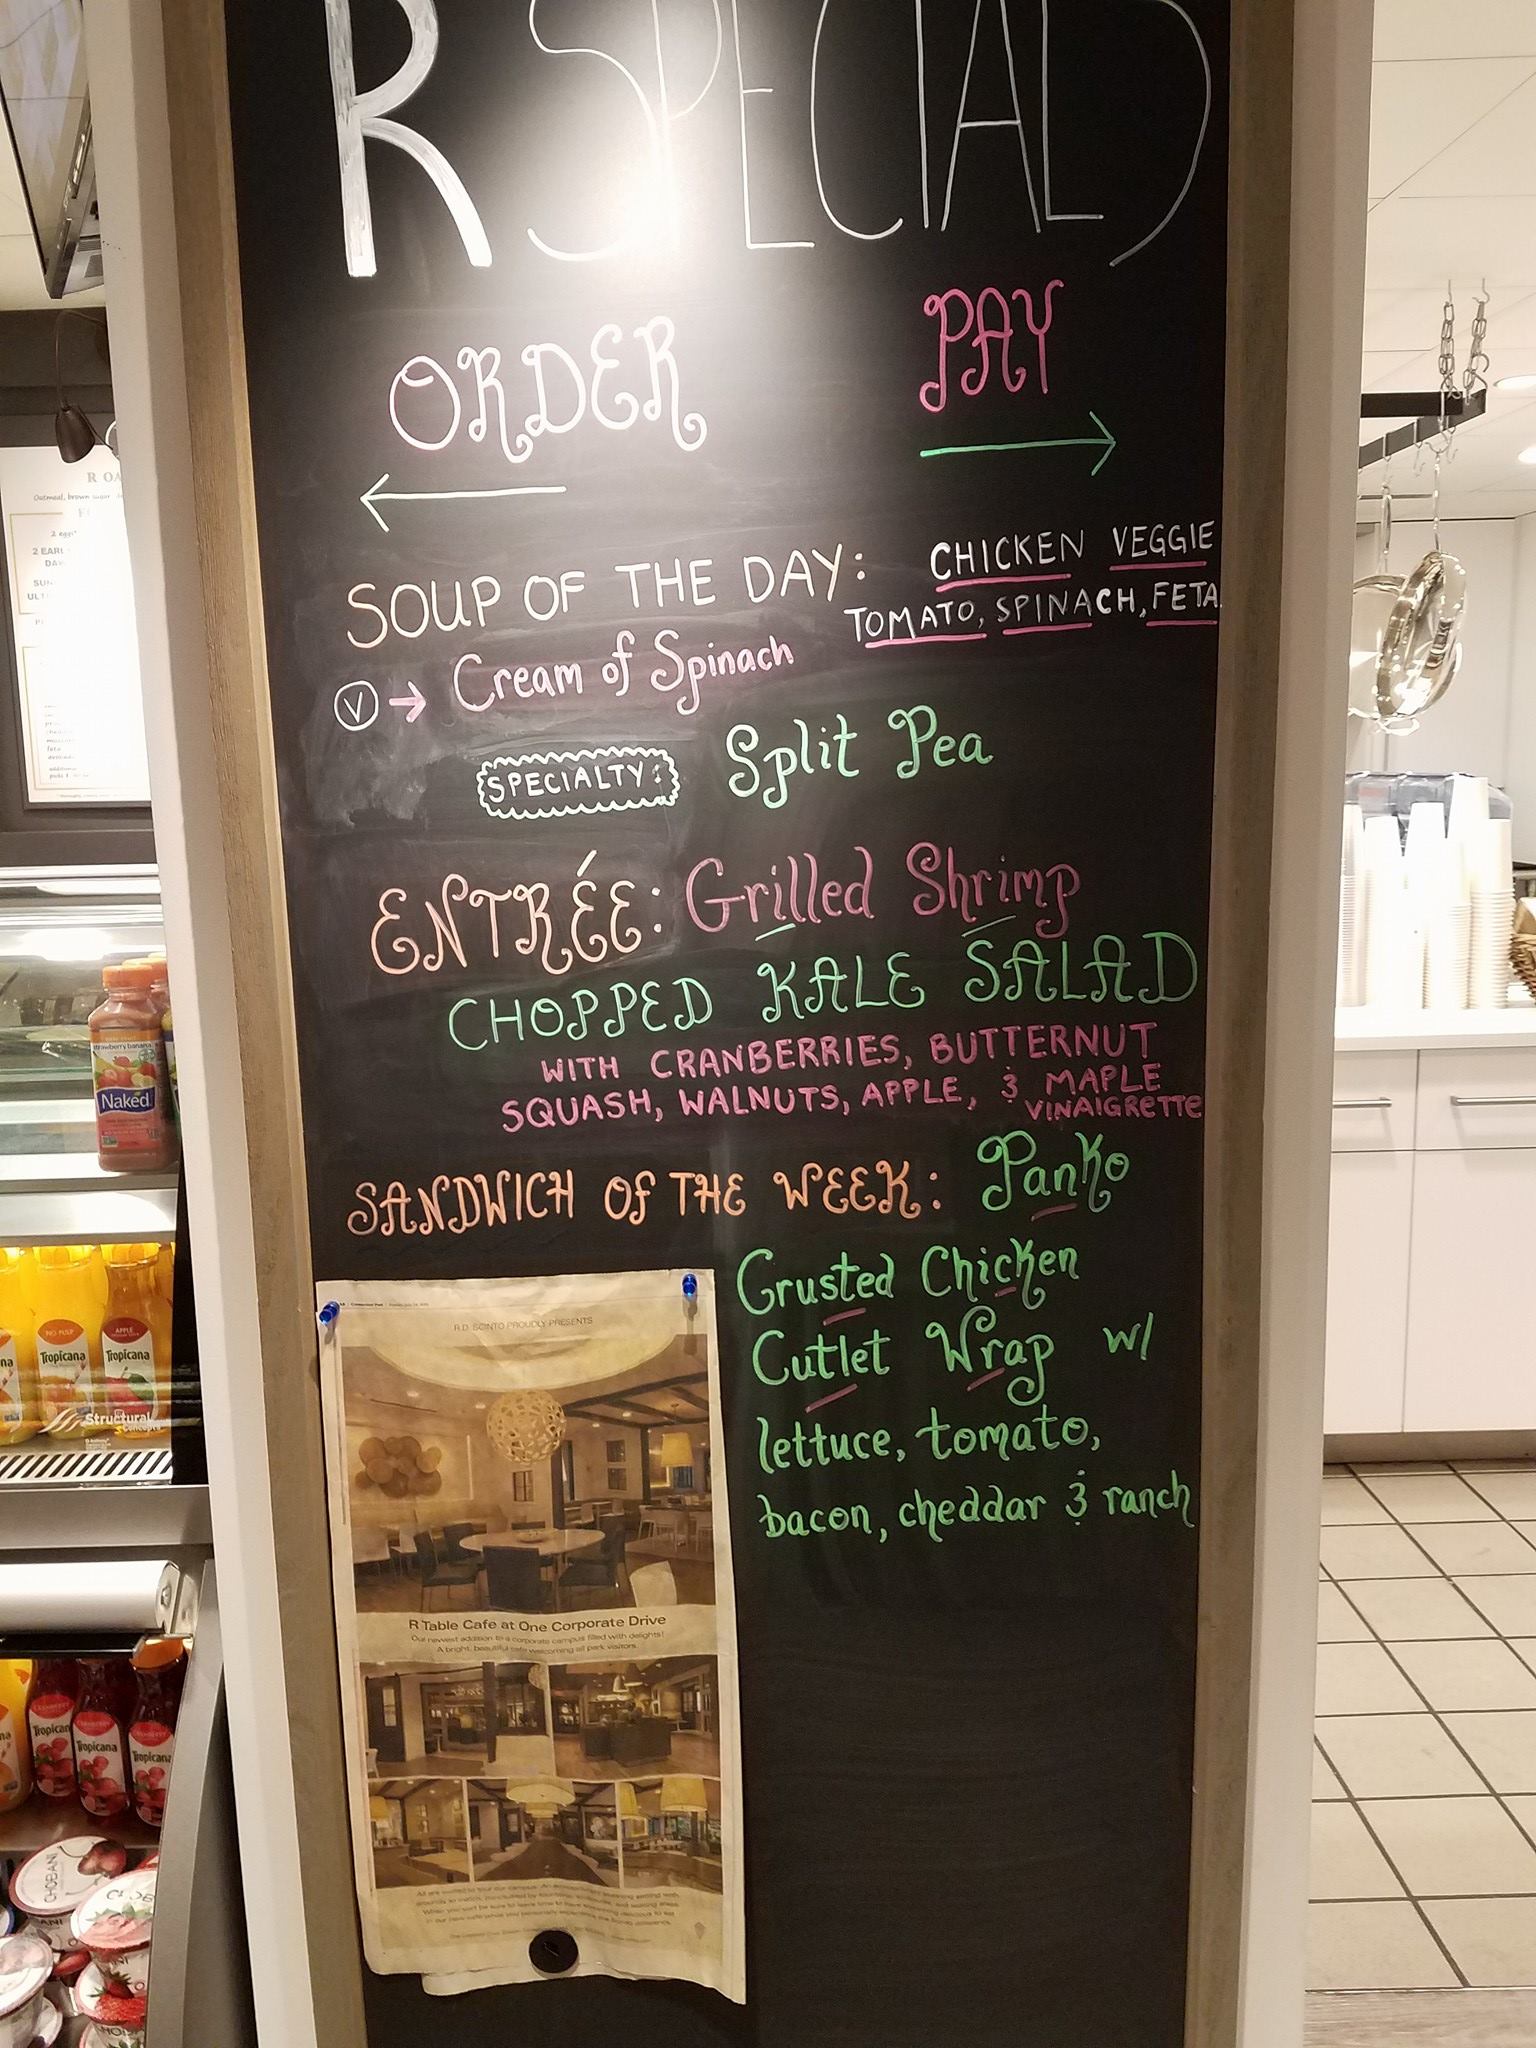 R SPECIALS
ORDER
PAY
SOUP OF THE DAY:
CHICKEN VEGGIE
TOMATO, SPINACH, FETA
V → Cream of Spinach
SPECIALTY: Split Pea
ENTRÉE: Grilled Shrimp
CHOPPED KALE SALAD
WITH CRANBERRIES, BUTTERNUT
SQUASH, WALNUTS, APPLE, & MAPLE
VINAIGRETTE
SANDWICH OF THE WEEK: Panko
Crusted Chicken
Cutlet Wrap w/
lettuce, tomato,
bacon, cheddar & ranch
R.D. SCINTO PROUDLY PRESENTS
R Table Cafe at One Corporate Drive
Our newest addition to a corporate campus filled with delights!
A bright, beautiful cafe welcoming all park visitors.
R OA
Oatmeal, brown sugar
2 eggs
2 EARL
strawberry banana
Naked
NO PULP
Tropicana
APPLE
Tropicana
Structural
Concepts
CRANBERRY
Tropicana
Tropicana
Tropicana
CHOBANI